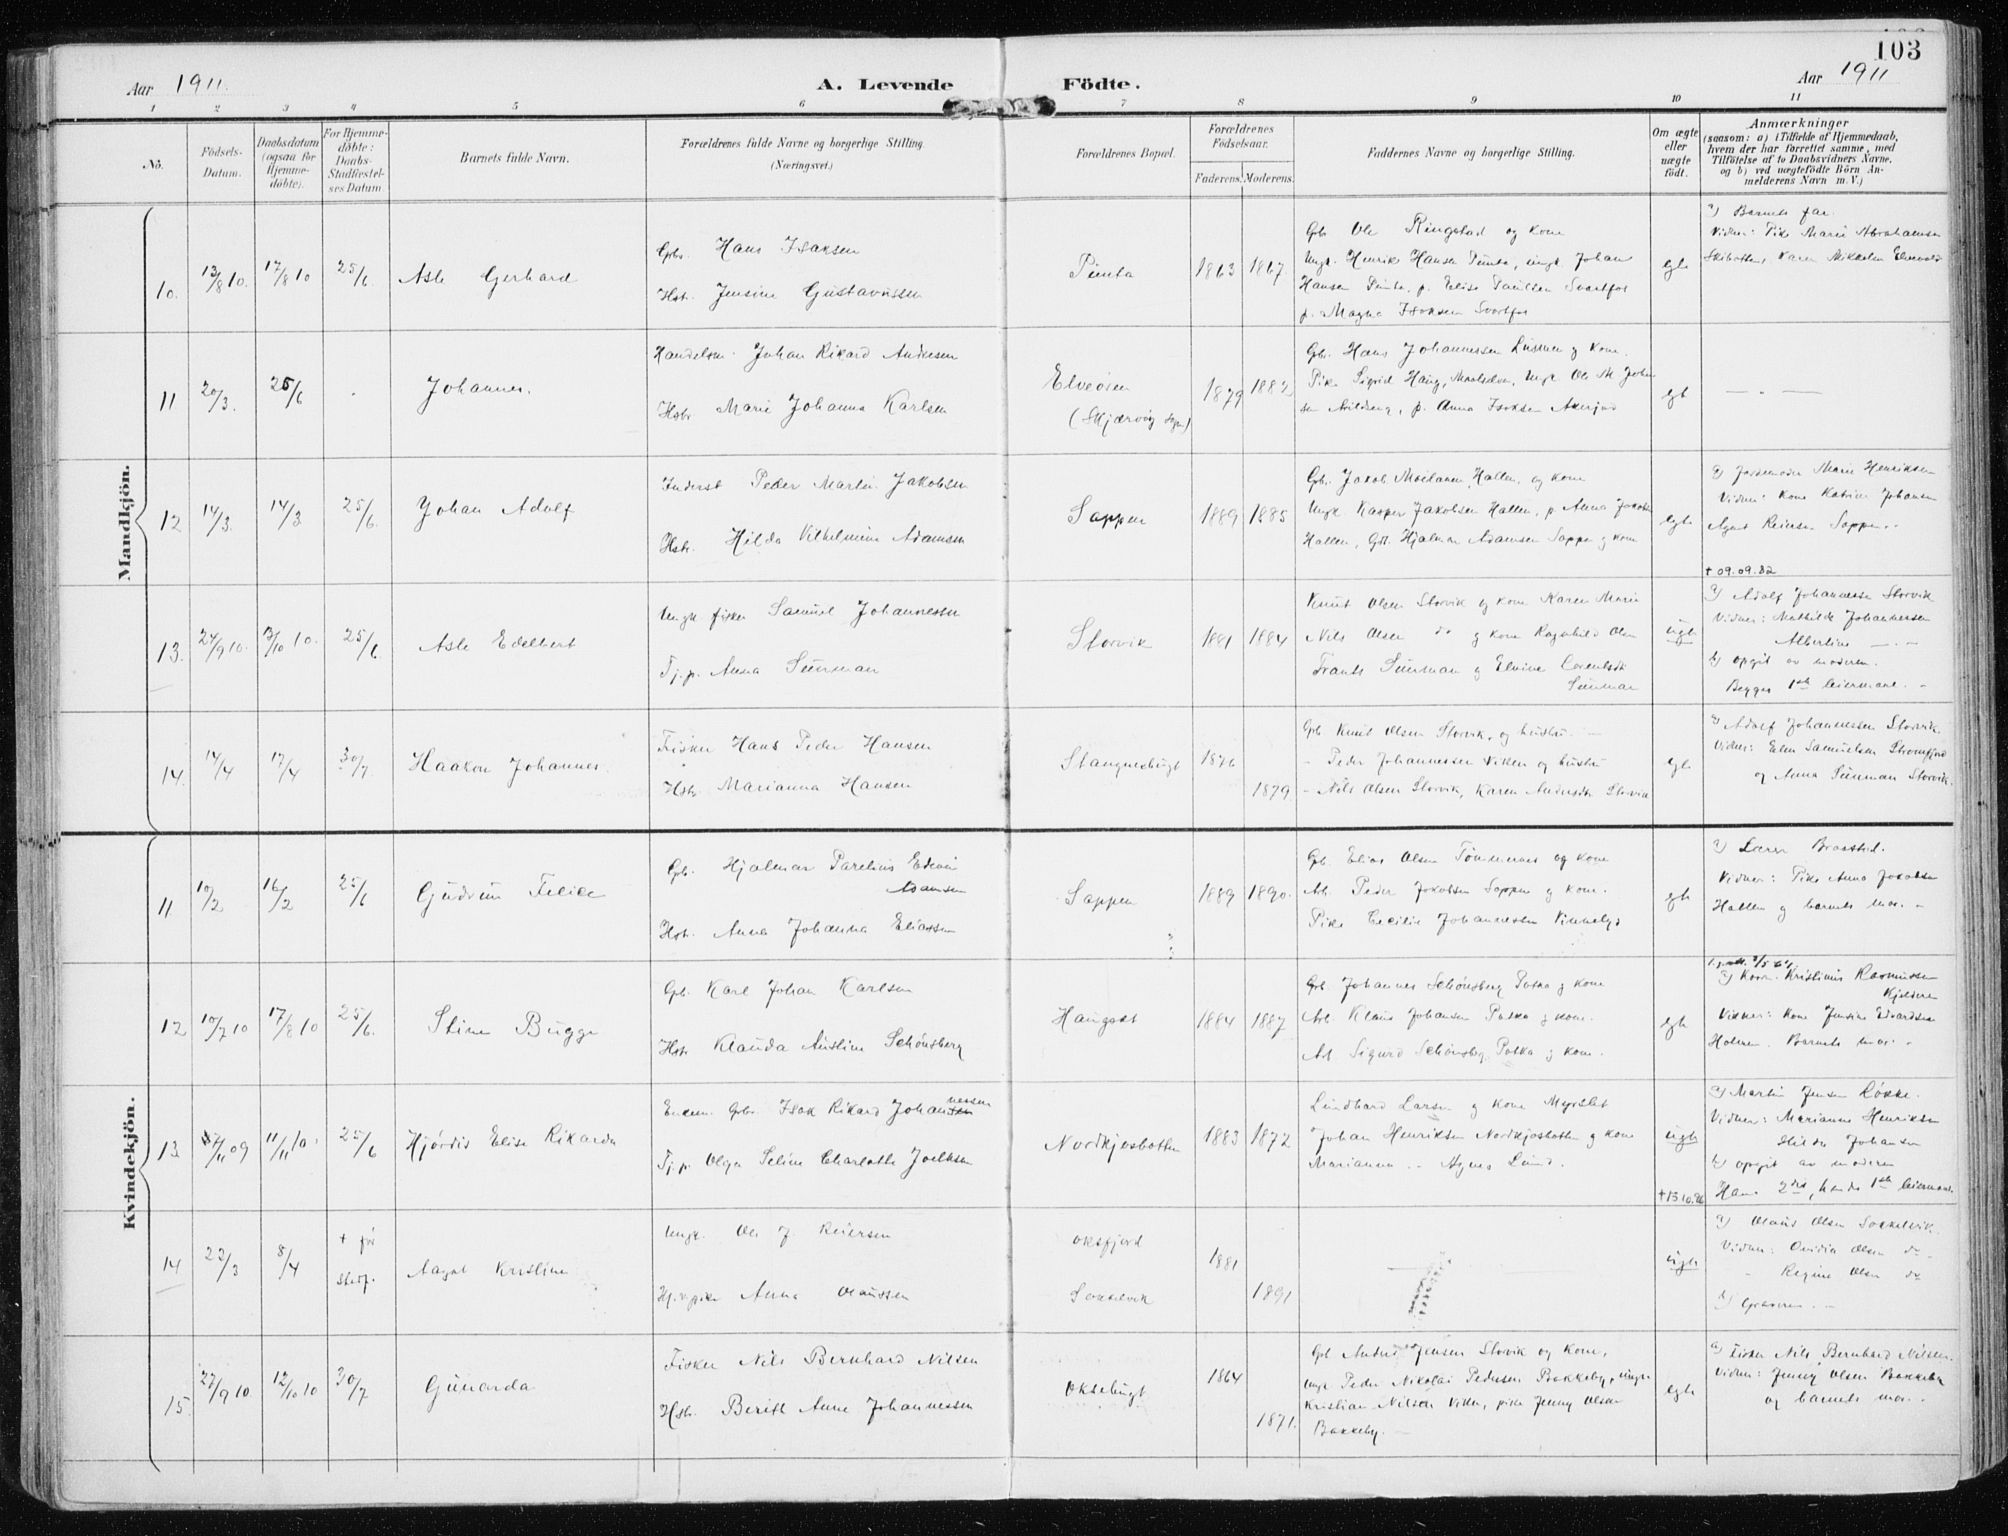 103
Aar 1911. A. Levende Födte. Aar 1911
1 2 3 4 5 6 7 8 9 10 11
No.
Födsels-
Datum.
Daabsdatum
(ogsaa for
Hjemme-
döbte).
For Hjemme-
döbte:
Daabs-
Stadfæstel-
ses Datum
Barnets fulde Navn.
Forældrenes fulde Navne og borgerlige Stilling.
(Næringsvei.)
Forældrenes Bopæl.
Forældrenes
Födselsaar.
Faderens. Moderens.
Faddernes Navne og borgerlige Stilling.
Om ægte
eller
uægte
födt.
Anmærkninger
(saasom: a) i Tilfælde af Hjemmedaab,
hvem der har forrettet samme, med
Tilföielse af to Daabsvidners Navne,
og b) ved uægtefödte Börn An-
melderens Navn m. V.)
Mandkjön.
10. 13/8 10. 17/8 10 25/6. Asle Gerhard
Gbr. Hans Isaksen
Hstr. Jensine Gustavussen
1863 1867.
Gbr Ole Ringstad og kone
Ungk. Henrik Hansen, ungk. Johan
Hansen, p. Elise Paulsen Svartfos
p. Magna Isaksen Svartfos
egte
a) Barnets far.
Vidner: Pike Marie Abrahamsen
Skibotten, Karen Mikkelsen
11 20/3. 25/6 Johannes.
Handelsm. Johan Rikard Andresen
Hstr. Marie Johanna Karlsen
Elveøren
(Skjærvøy sogn)
1879 1882
Gbr. Hans Johannessen og kone.
Pike Sigrid Haug, Maalselven, Ungk. Ole M. Johan
sen, p. Anna Isaksen
egte
12 14/3. 14/3 25/6. Johan Adolf
Inderst Peder Martin Jakobsen
Hstr. Hilda Vilhelmine Adamsen
Sappen
1889 1885
Gbr. Jakob Moilanen, Hallen, og kone
Ungk. Kasper Jakobsen Hallen, p. Anna Jakobsen
Hallen, Gbr. Hjalmar Adamsen Sappen og kone
egte
a) Jordemoder Marie Henriksen
Vidner: Kone Katrine Johansen
Agnes Reiersen Sappen.
† 09.09.82
13. 24/9 10. 3/10 10. 25/6. Asle Edelbert
Ungk. fisker Samuel Johannessen
Tj.p. Anna Sunman
Storvik
1881 1884
Knut Olsen Storvik og kone Karen Marie
Nils Olsen do og kone Ragnhild Olsen
Frants Sunman og Elvine Lorentsdtr
Sunman
uegte
a) Adolf Johannessen Storvik
Vidner: Mathilde Johannessen
Albertine
b) opgit av moderen.
Begges 1ste leiermaal.
14. 14/4 17/4 30/7. Haakon Johannes.
Fisker Hans Peder Hansen
Hstr. Marianna Hansen
Stangnesbugt
1876
1879
Gbr Knut Olsen Storvik, og hustru.
Peder Johannessen Viken og hustru
Nils Olsen Storvik, Karen Andersdtr Storvik
egte
a) Adolf Johannessen Storvik.
Vidner: Elen Samuelsen Straumfjord
og Anna Sunman Storvik.
Kvindekjön.
11 10/2 16/2 25/6 Gudrun Felice
Gbr. Hjalmar Parelius Edevin
Adamsen
Hstr. Anna Johanna Eliassen
Sappen
1889 1890.
Gbr. Elias Olsen Tømmernes og kone
Arb. Peder Jakobsen Sappen og kone.
Pike Cecilie Johannessen
egte
a) Lærer Brostad.
Vidner: Pike Anna Jakobsen
Hallen og barnets mor.
12 10/7 10 17/8 10 25/6. Stine Bugge
Gbr. Karl Johan Karlsen
Hstr. Klauda Austine Schønsberg
Haugset
1884 1887
Gbr. Johannes Schønsberg Potka og kone
Arb Klaus Johansen Potka og kone.
Arb Sigurd Schønsberg Potka og kone.
egte
a) Kone Kristine Rasmussen
Kjelderen
Vidner: Kone Jensine Edvardsen
Holmen. Barnets mor.
13 11/11 09 11/11 10. 25/6 Hjørdis Elise Rikarda
Enkem. Gbr. Isak Rikard Johannessen
Tj.p. Olga Seline Charlotte Joelsen
Nordkjosbotten
1883 1872
Lindhard Larsen og kone Myrslet
Johan Henriksen Nordkjosbotten og kone
Marianna. Agnes Lund.
uegte
† 15.10.96
a) Martin Jensen Løkke.
Vidner: Marianne Henriksen
Hilda Johansen
b) opgit av moderen
Hans 2det, hendes 1ste leiermaal.
14 22/3 8/4 † før stadf. Aagot Kristine
Ungk. Ole J. Reiersen
pike Anna Olaussen
Oksfjord
Sokkelvik
1881
1891
uegte
a) Olaus Olsen Sokkelvik.
Vidner: Ovidia Olsen do
Regine Olsen do
15 27/9 10 12/10 10 30/7 Gunarda
Fisker Nils Bernhard Nilsen
Hstr. Berith Anne Johannessen
Oksebugt
1864
1871.
Gbr Anders Jensen Storvik og kone,
Ungk Peder Nikolai Pedersen Bakkeby, ungk
Kristian Nilsen Viken, pike Jenny Olsen
Bakkeby.
egte
a) Fisker Nils Bernhard Nilsen.
Vidner: Jenny Olsen Bakkeby
og barnets mor.